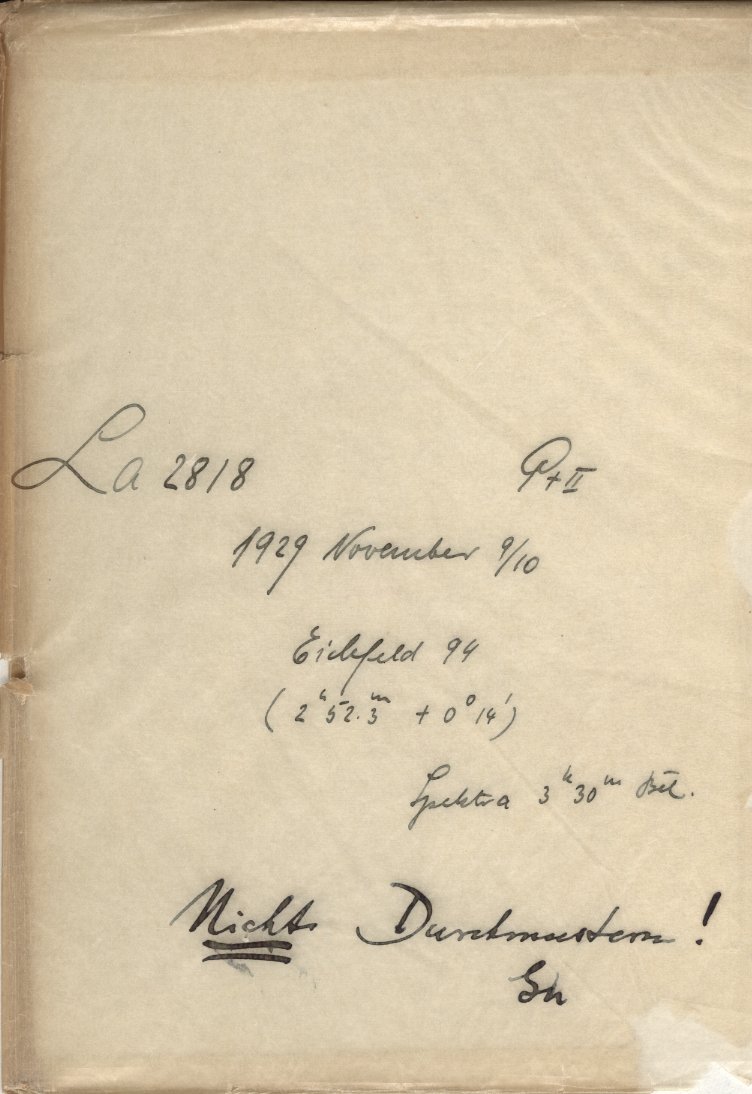 La 2818 P+II
1929 November 9/10
Eichfeld 94
( 2ʰ 52.3ᵐ + 0° 14')
Spektra 3ʰ 30ᵐ Bel.
Nicht Durchmustern !